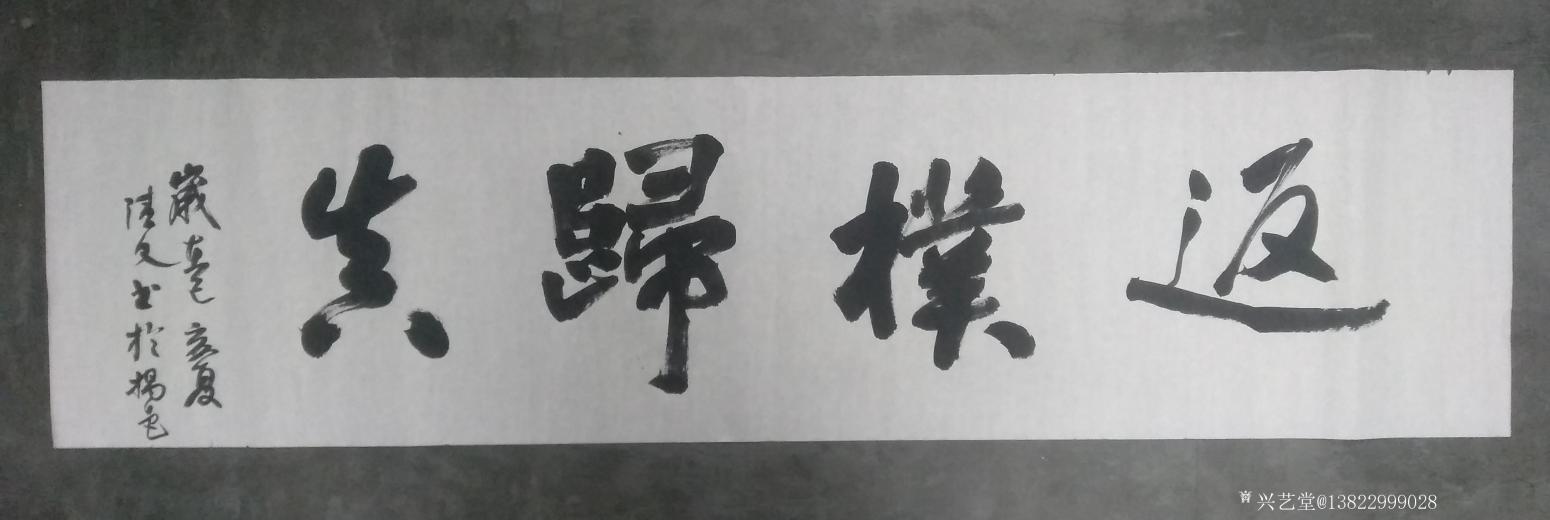 返樸歸真
歲在己亥夏
陸文書於楊邑
兴艺堂@13822999028